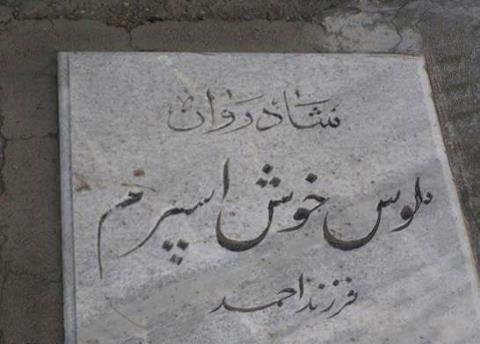 شادروان
ملوس خوش اسپرم
فرزند احمد